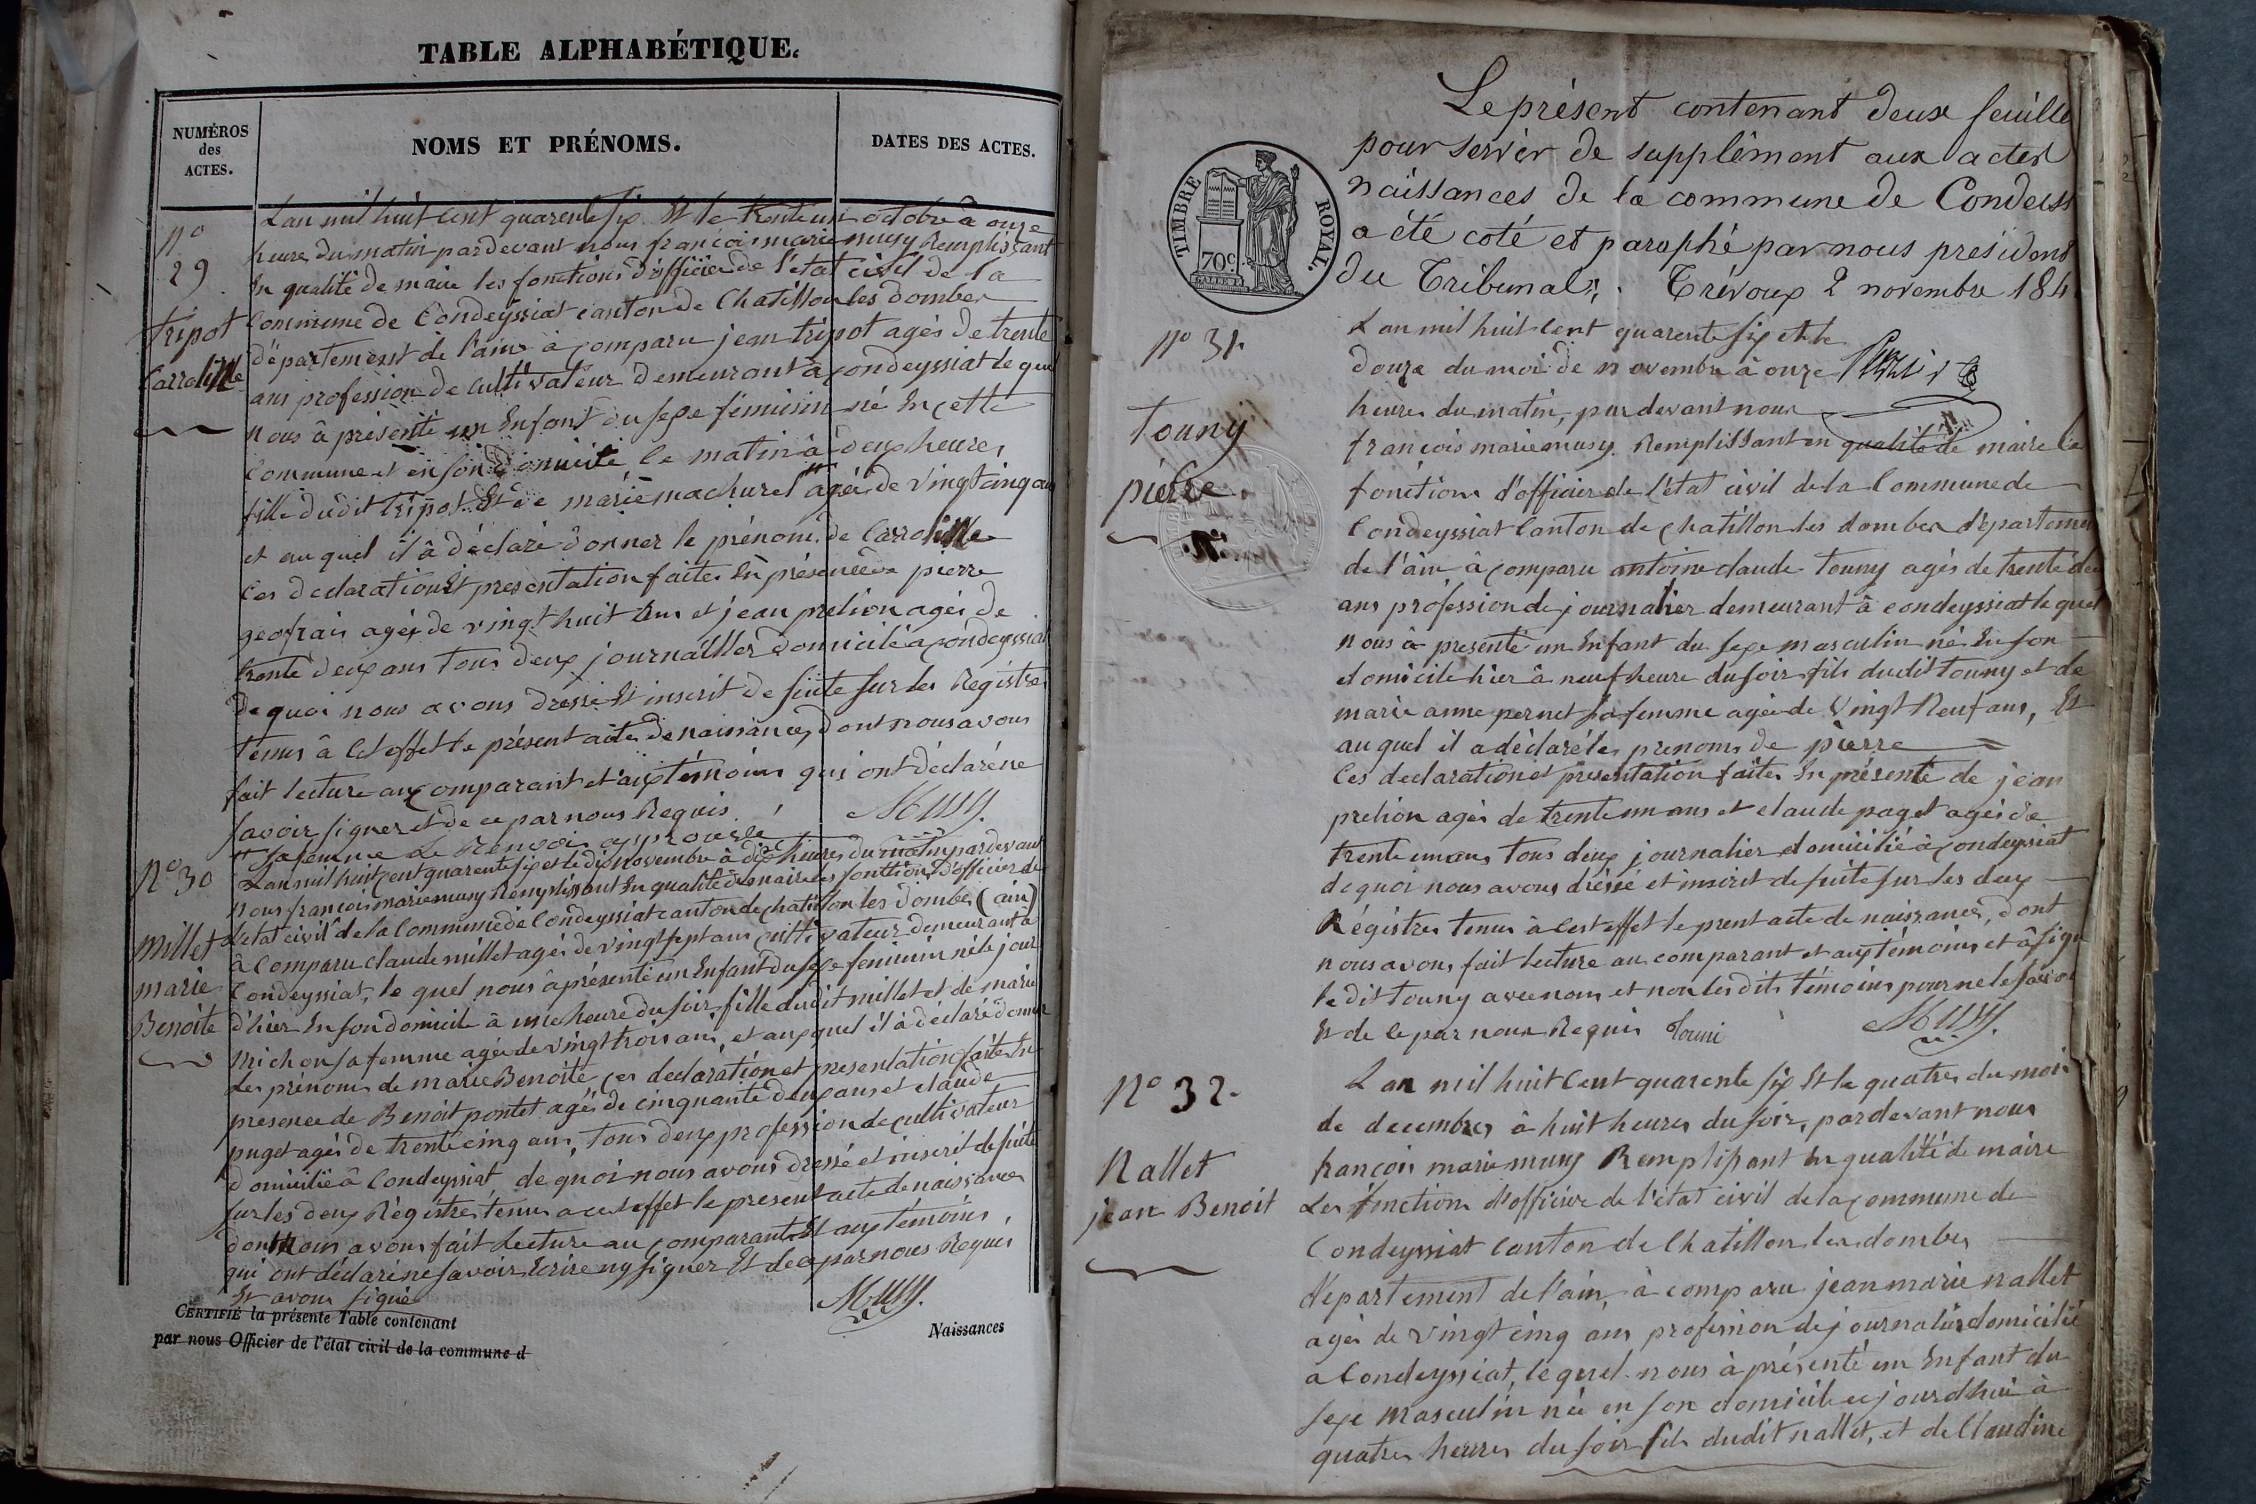 TABLE ALPHABÉTIQUE.
NUMÉROS
des
ACTES.
NOMS ET PRÉNOMS.
DATES DES ACTES.
N°
29
tripot
Carroline
L'an mil huit cent quarente six Et le trente un octobre à onze
heures du matin pardevant nous françois marie musy Remplissant
En qualité de maire les fonctions d'officier de l'état civil de la
Commune de Condeyssiat canton de Chatillon les dombes
département de l'ain à comparu jean tripot agés de trente
ans profession de cultivateur demeurant à condeyssiat le quel
nous à présenté un Enfant du sexe féminin né En cette
Commune et en son domicile le matin à deux heures
fille dudit tripot Et de marie machuret agée de vingt cinq ans
et au quel il â déclaré donner le prénom de Carroline
Ces declaration Et presentation faites En présence de pierre
geofrais agés de vingt huit Ans et jean prelion agés de
trente deux ans tous deux journallier domicilié a condeyssiat
de quoi nous avons dressé Et inscrit de suite sur les Registres
tenus à cet effet le présent acte de naissance, dont nous avons
fait lecture au comparant et aux témoins qui ont déclaré ne
savoir signer et de ce par nous Requis. Musy.
sa femme Le Renvois approuvée
N° 30
Millet
marie
Benoite
L'an mil huit cent quarente six et le dix novembre à dix heures du matin pardevant
nous françois marie musy Remplissant En qualité de maire les fonctions d'officier de
l'etat civil de la Commune de Condeyssiat canton de chatillon les dombes (ain)
à Comparu claude millet agés de vingt sept ans cultivateur demeurant à
Condeyssiat, le quel nous à présenté un Enfant du sexe feminin né le jour
d'hier En son domicile à une heure du soir fille dudit millet et de marie
Michon sa femme agée de vingt trois ans, et au quel il à déclaré donner
Les prénoms de marie Benoite ces declaration et presentation faites En
presence de Benoit pontet agés de cinquante deux ans et claude
puget agés de trente cinq ans, tous deux profession de cultivateur
domicilié â Condeyssiat de quoi nous avons dressé et inscrit de suite
sur les deux Régistres tenus a cet effet le present acte de naissance
dont Nous avons fait Lecture au comparant Et aux témoins,
qui ont déclaré ne savoir Ecrire ny signer Et de ce par nous Requis
Et avons signé Musy.
CERTIFIÉ la présente Table contenant
par nous Officier de l'état civil de la commune d
Naissances
Le présent contenant deux feuille
pour servir de supplément aux actes
naissances de la commune de Condeiss
a été coté et paraphé par nous président
du Tribunal. Trévoux 2 novembre 184
TIMBRE ROYAL.
70c.
N° 31.
Touny
pierre
L'an mil huit cent quarente six et le
douze du moi de novembre à onze
heures du matin, par devant nous
françois marie musy. Remplissant en qualité de maire les
fonctions d'officier de l'état civil de la Commune de
Condeyssiat Canton de chatillon les dombes département
de l'ain à comparu antoine claude touny agés de trente deux
ans profession de journalier demeurant à condeyssiat le quel
nous à presenté un Enfant du sexe masculin né En son
domicile hier à neuf heure du soir fils dudit touny et de
marie anne pernet sa femme agée de vingt Neuf ans, Et
au quel il a déclaré les prenoms de pierre
Ces declaration et presentation faites En présente de jean
prelion agés de trente un ans et claude paget agés de
trente un ans tous deux journalier domicilié à condeyssiat
de quoi nous avons dréssé et inscrit de suite sur les deux
Régistres tenus à cest effet le prent acte de naissance, dont
nous avons fait lecture au comparant et aux témoins et â signé
le dit touny avec nous et non les dits témoins pour ne le savoir
Et de ce par nous Requis Touni Musy.
N° 32.
Nallet
jean Benoit
L'an mil huit Cent quarente six Et le quatres du mois
de decembres à huit heures du soir, pardevant nous
françois marie musy Remplissant En qualité de maire
Les fonctions d'officier de l'état civil de la commune de
Condeyssiat canton de Chatillon les dombes
département de l'ain, à comparu jean marie nallet
agés de vingt cinq ans profession de journalier domicilié
a Condeyssiat, le quel nous à présenté un Enfant du
sexe masculin né en son domicile ce jourd'hui à
quatres heures du soir fils dudit nallet, et de Claudine